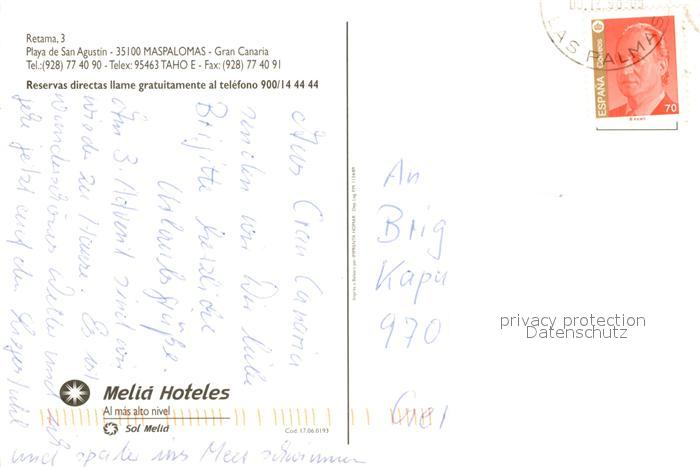 Retama, 3
Playa de San Agustín - 35100 MASPALOMAS - Gran Canaria
Tel.:(928) 77 40 90 - Telex: 95463 TAHO E - Fax: (928) 77 40 91
Reservas directas llame gratuitamente al teléfono 900/14 44 44
Aus Gran Canaria
senden wir Dir liebe
Brigitte herzliche
Urlaubsgrüße.
Am 3. Advent sind wir
wieder zu Hause. Es ist
wunderschönes Wetter und ich
gehe jetzt auf den Liegestuhl
und später ins Meer schwimmen
Meliá Hoteles
Al más alto nivel
Sol Meliá
Cod. 17.06.0193
LAS PALMAS
ESPAÑA
CORREOS
70
An
Brig
Kapu
970
privacy protection
Datenschutz